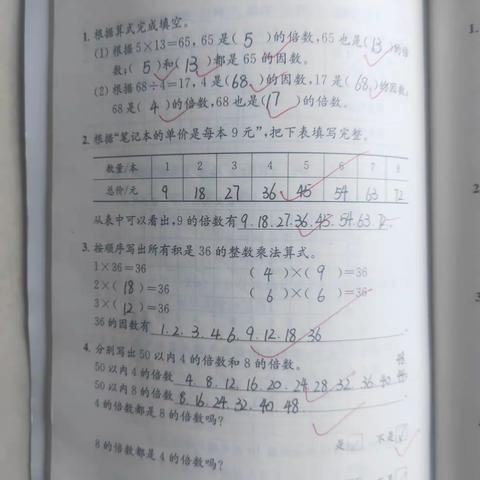 1. 根据算式完成填空。
(1) 根据5×13=65, 65是( 5 )的倍数, 65也是( 13 )的倍
数; ( 5 )和( 13 )都是65的因数。
(2) 根据68÷4=17, 4是( 68 )的因数, 17是( 68 )的因数,
68是( 4 )的倍数, 68也是( 17 )的倍数。
2. 根据“笔记本的单价是每本9元”, 把下表填写完整。
数量/本 1 2 3 4 5 6 7 8
总价/元 9 18 27 36 45 54 63 72
从表中可以看出, 9的倍数有 9. 18. 27. 36. 45. 54. 63. 72
3. 按顺序写出所有积是36的整数乘法算式。
1×36=36 ( 4 )×( 9 )=36
2×( 18 )=36 ( 6 )×( 6 )=36
3×( 12 )=36
36的因数有 1. 2. 3. 4. 6. 9. 12. 18. 36
4. 分别写出50以内4的倍数和8的倍数。
50以内4的倍数 4. 8. 12. 16. 20. 24. 28. 32. 36. 40 48
50以内8的倍数 8. 16. 24. 32. 40. 48
4的倍数都是8的倍数吗?
是 不是
8的倍数都是4的倍数吗?